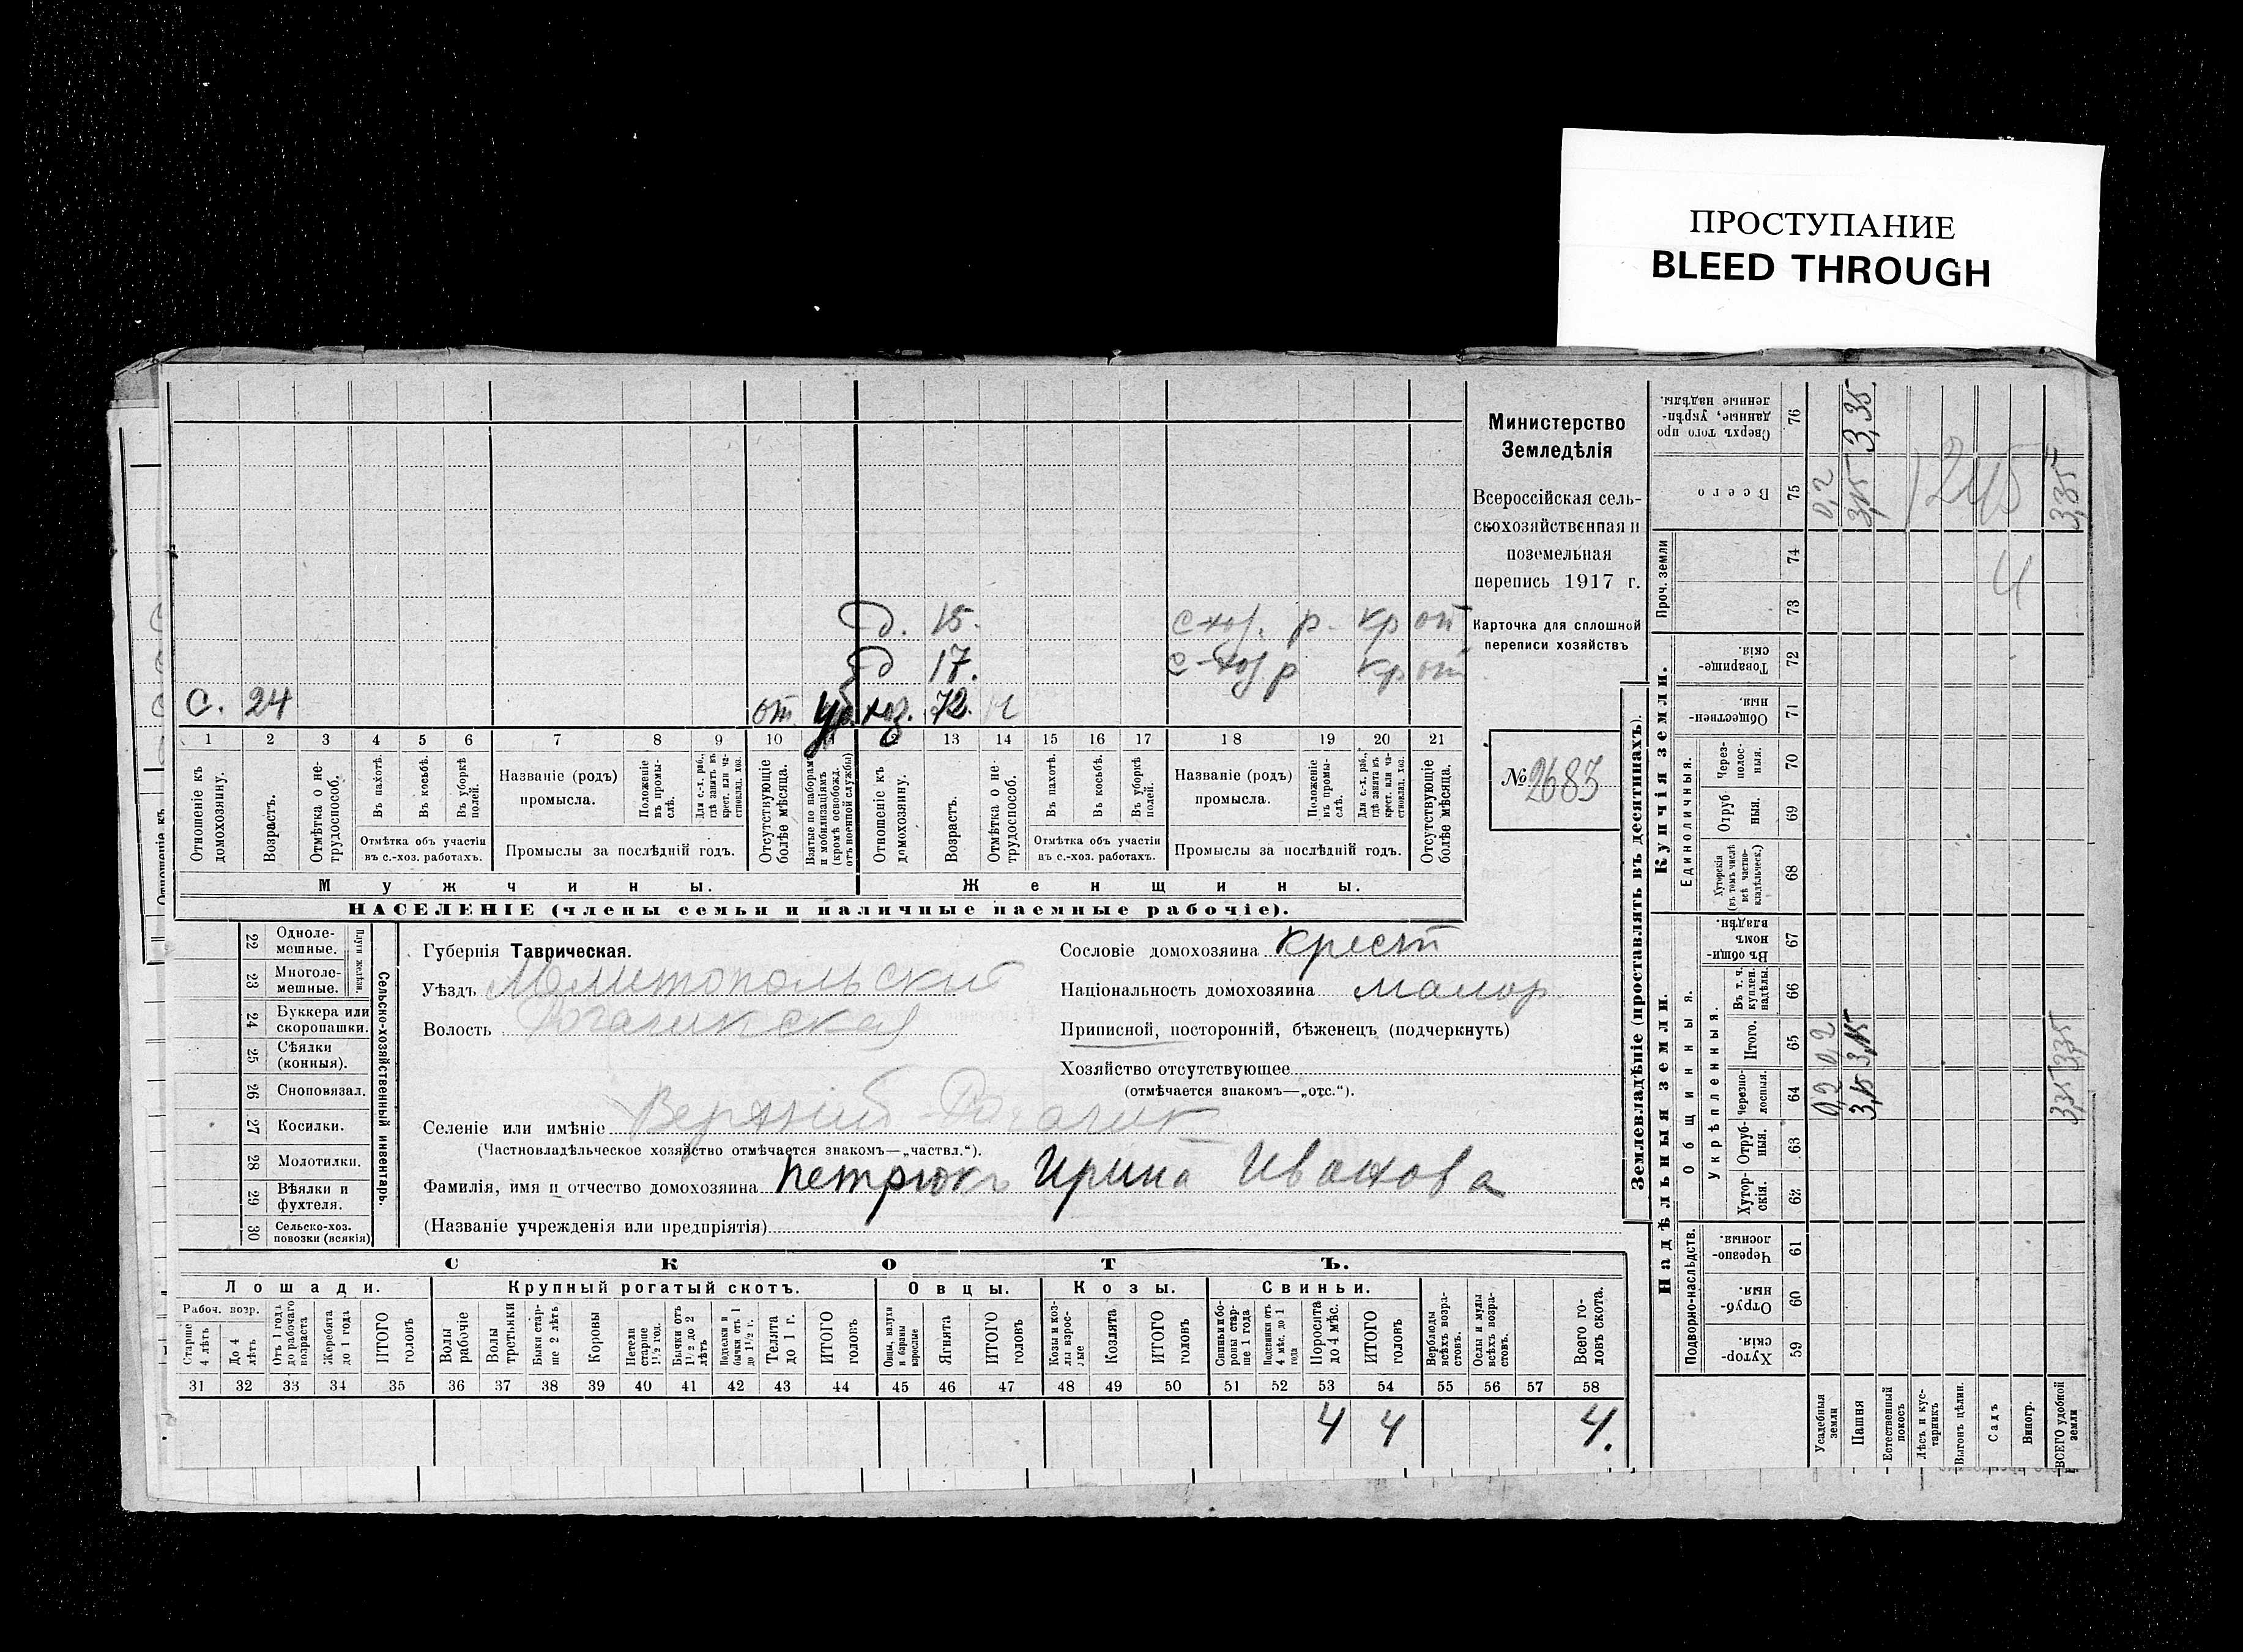 ПРОСТУПАНИЕ
BLEED THROUGH
Министерство
Земледѣлія
Всероссійская сель-
скохозяйственная и
поземельная
перепись 1917 г.
Карточка для сплошной
переписи хозяйствъ
№ 2683
д. 15.
с-хоз. р. кр от
д 17.
с-хоз р кр от
С. 24 от хоз. 72.
1 2 3 4 5 6 7 8 9 10 11 12 13 14 15 16 17 18 19 20 21
Отношеніе къ домохозяину.
Возрастъ.
Отмѣтка о не-трудоспособ.
Въ пахотѣ.
Въ косьбѣ.
Въ уборкѣ полей.
Отмѣтка объ участіи
въ с.-хоз. работахъ.
Названіе (родъ)
промысла.
Положеніе въ промы-слѣ.
Для с.-х. раб., гдѣ занятъ въ крест. или ча-стновлад. хоз.
Промыслы за послѣдній годъ.
Отсутствующіе болѣе мѣсяца.
Взятые по наборамъ и мобилизаціямъ (кромѣ освобожд. отъ военной службы)
Отношеніе къ домохозяину.
Возрастъ.
Отмѣтка о не-трудоспособ.
Въ пахотѣ.
Въ косьбѣ.
Въ уборкѣ полей.
Отмѣтка объ участіи
въ с.-хоз. работахъ.
Названіе (родъ)
промысла.
Положеніе въ промы-слѣ.
Для с.-х. раб., гдѣ занята въ крест. или ча-стновлад. хоз.
Промыслы за послѣдній годъ.
Отсутствующіе болѣе мѣсяца.
Мужчины. Женщины.
НАСЕЛЕНІЕ (члены семьи и наличные наемные рабочіе).
Сельско-хозяйственный инвентарь.
Плуги желѣзн.
22 Одноле-мешные.
23 Многоле-мешные.
24 Буккера или скоропашки.
25 Сѣялки (конныя).
26 Сноповязал.
27 Косилки.
28 Молотилки.
29 Вѣялки и фухтеля.
30 Сельско-хоз. повозки (всякія)
Губернія Таврическая.
Уѣздъ Мелитопольский
Волость Рогачикская
Селеніе или имѣніе Верхний Рогачик
(Частновладѣльческое хозяйство отмѣчается знакомъ—„частвл.“).
Фамилія, имя и отчество домохозяина Петрюкъ Ирина Иванова
(Названіе учрежденія или предпріятія)
Сословіе домохозяина крест
Національность домохозяина малор
Приписной, посторонній, бѣженецъ (подчеркнуть)
Хозяйство отсутствующее
(отмѣчается знакомъ—„отс.“).
СКОТЪ.
Лошади. Крупный рогатый скотъ. Овцы. Козы. Свиньи.
Рабоч. возр.
Старше 4 лѣтъ
До 4 лѣтъ
Отъ 1 года до рабочаго возраста
Жеребята до 1 года
ИТОГО головъ
Волы рабочіе
Волы третьяки
Быки стар-ше 2 лѣтъ
Коровы
Нетели старше 1½ год.
Бычки отъ 1½ до 2 лѣтъ
Подтелки и бычки отъ 1 до 1½ г.
Телята до 1 г.
ИТОГО головъ
Овцы, валухи и бараны взрослые
Ягнята
ИТОГО головъ
Козы и коз-лы взрос-лые
Козлята
ИТОГО головъ
Свиньи и бо-ровы стар-ше 1 года
Подсвинки отъ 4 мѣс. до 1 года
Поросята до 4 мѣс.
ИТОГО головъ
Верблюды всѣхъ возра-стовъ.
Ослы и мулы всѣхъ возра-стовъ.
Всего го-ловъ скота.
31 32 33 34 35 36 37 38 39 40 41 42 43 44 45 46 47 48 49 50 51 52 53 54 55 56 57 58
4 4 4.
Землевладѣніе (проставлять въ десятинахъ).
Надѣльныя земли. Купчія земли.
Подворно-наслѣдств.
Общинныя.
Укрѣпленныя.
Единоличныя.
Проч. земли
Хутор-скія. 59
Отруб-ныя. 60
Черезпо-лосныя. 61
Хутор-скія. 62
Отруб-ныя. 63
Черезпо-лосныя. 64
Итого. 65
Въ т. ч. куплен. надѣлы. 66
Въ общи-номъ владѣн. 67
Хуторскія (въ томъ числѣ всѣ частно-владѣльческ.) 68
Отруб-ныя. 69
Через-полос-ныя. 70
Обществен-ныя. 71
Товарище-скія. 72
73
74
Всего 75
Сверхъ того про-данные, укрѣп-ленные надѣлы. 76
Усадебныя земли 0,2 0,2 0,2
Пашня 3,15 3,15 3,15 3,35
Естественный покосъ
Лѣсъ и кус-тарникъ
Выгонъ цѣлин.
Садъ
Виногр.
ВСЕГО удобной земли 3,35 3,35 3,35
1245
4